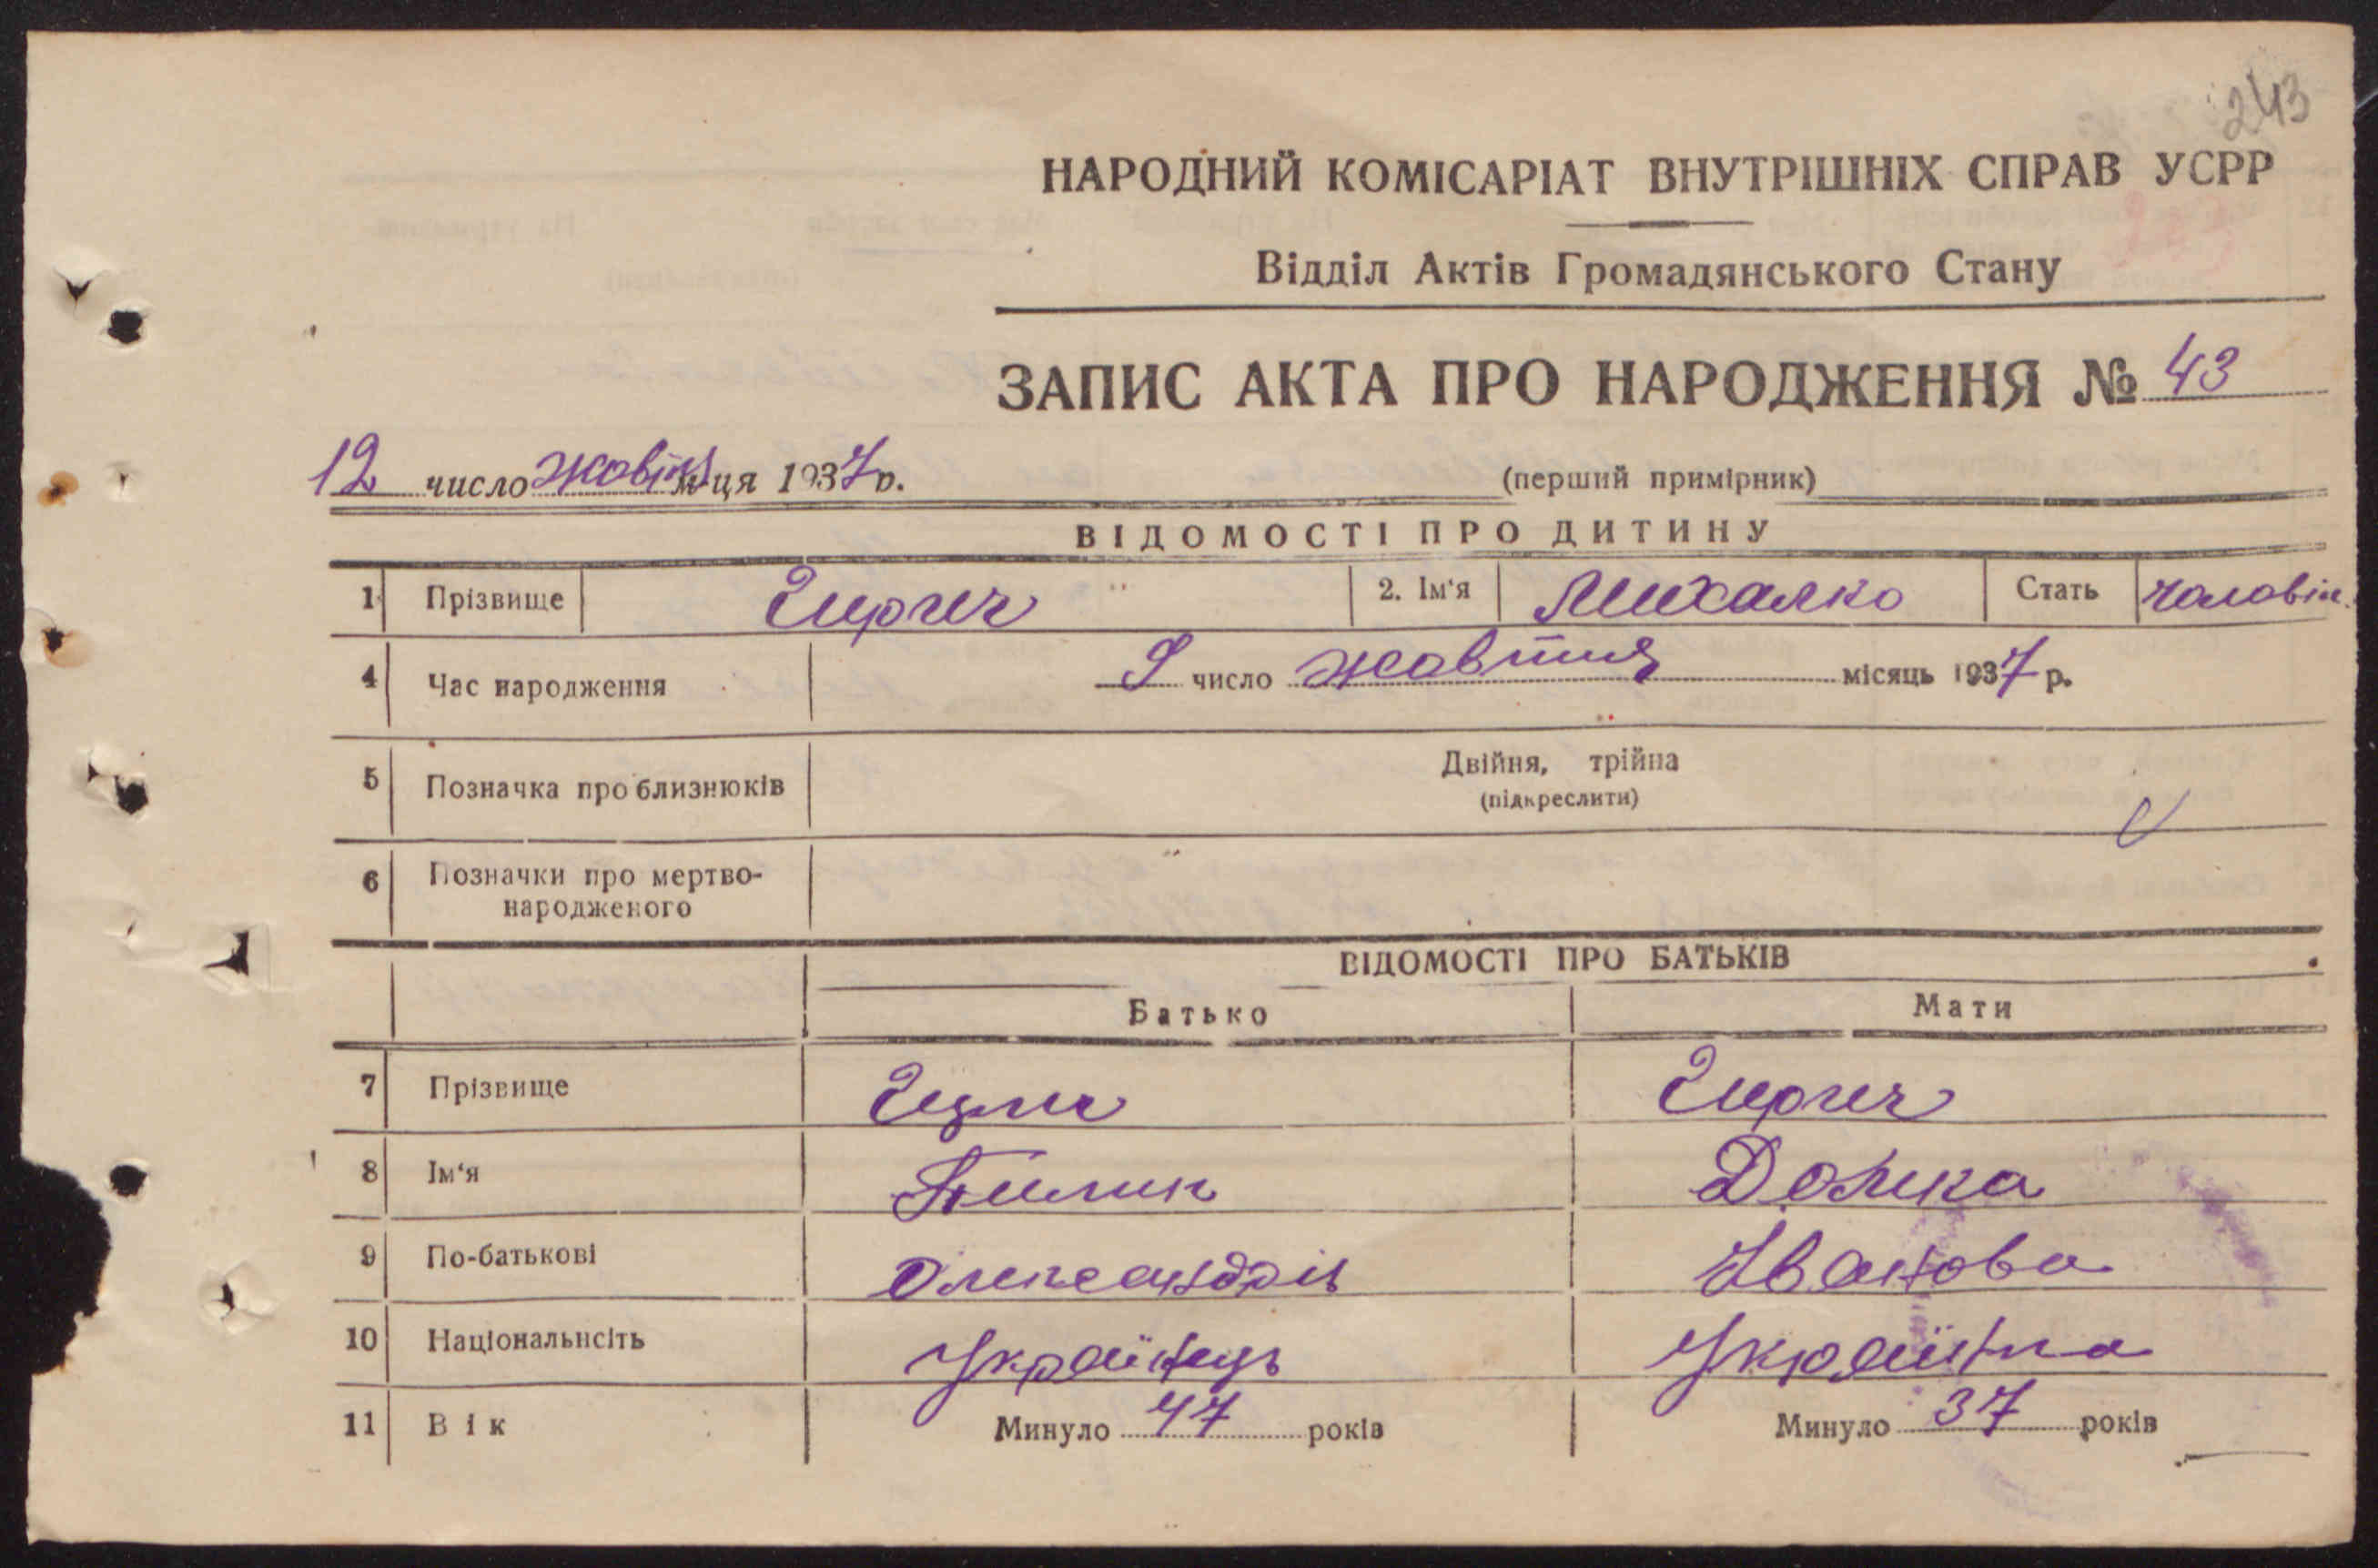 243
НАРОДНИЙ КОМІСАРІАТ ВНУТРІШНІХ СПРАВ УСРР
Відділ Актів Громадянського Стану
ЗАПИС АКТА ПРО НАРОДЖЕННЯ № 43
12 число жовтн м-ця 1937 р.
(перший примірник)
ВІДОМОСТІ ПРО ДИТИНУ
1 Прізвище 2. Ім'я Михалко Стать чоловіч.
4 Час народження 9 число жовтня місяць 1937 р.
5 Позначка про близнюків Двійня, трійна
(підкреслити)
6 Позначки про мертво-
народженого
ВІДОМОСТІ ПРО БАТЬКІВ
Батько Мати
7 Прізвище
8 Ім'я Пилип Домка
9 По-батькові Олександрів Іванова
10 Національнсіть Українець Українка
11 Вік Минуло 47 років Минуло 37 років